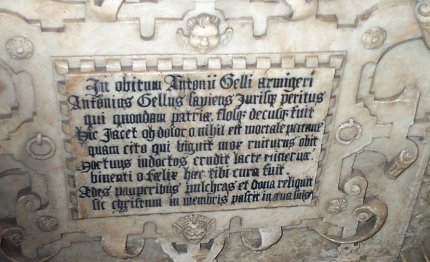 In obitum Antonii Gelli armigeri
Antonius Gellus sapiens Jurisq; peritus
qui quondam patriæ flosq; decusq; fuit
Hic Jacet oh dolor o nihil est mortale perenne
quam cito qui viguit mox ruiturus obit
Doctuus indoctos erudit lacte Minerua
binenti o felix hec tibi cura fuit
Ædes pauperibus pulchras et dona reliquit
sic christum in membris pascit in suis